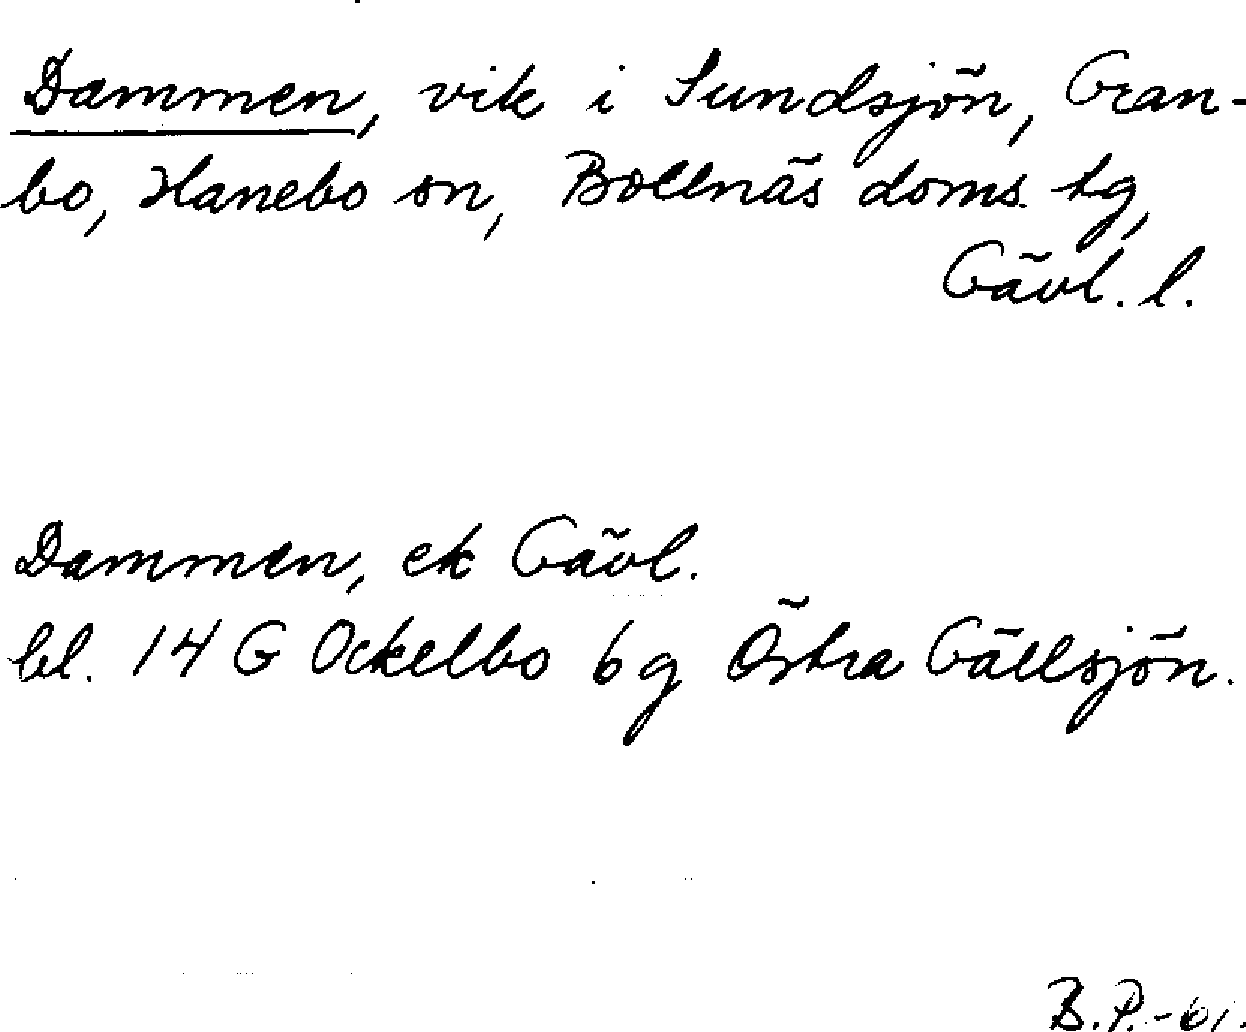 Dammen, vik i Sundsjön, Gran-
bo, Hanebo sn, Bollnäs doms. tg,
Gävl. l.
Dammen, ek Gävl.
bl. 14 G Ockelbo 6 g Östra Gällsjön.
B.P.-61.